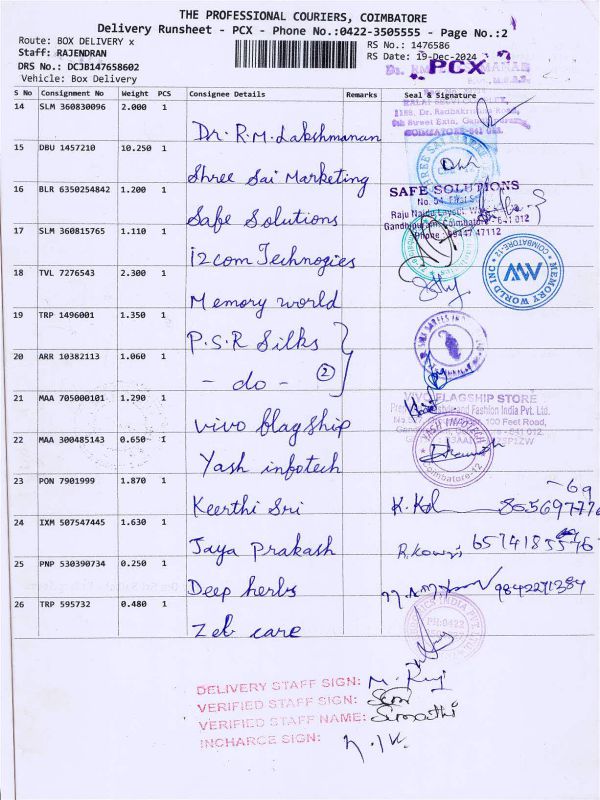 THE PROFESSIONAL COURIERS, COIMBATORE
Delivery Runsheet - PCX - Phone No.:0422-3505555 - Page No.:2
Route: BOX DELIVERY x
RS No.: 1476586
Staff: RAJENDRAN
RS Date: 19-Dec-2024
DRS No.: DCJB147658602
PCX
Vehicle: Box Delivery
S No Consignment No Weight PCS Consignee Details Remarks Seal & Signature
14 SLM 360830096 2.000 1
Dr. R.M. Lakshmanan
COIMBATORE-641
15 DBU 1457210 10.250 1
Shree Sai Marketing
16 BLR 6350254842 1.200 1
Safe Solutions
SAFE SOLUTIONS
No. 54, First
Raju Naidu Layout,
Gandhipuram, Coimbatore - 641 012
Phone: 98447 47112
17 SLM 360815765 1.110 1
i2com Technogies
18 TVL 7276543 2.300 1
Memory world
MEMORY WORLD INC
COIMBATORE-12
19 TRP 1496001 1.350 1
P.S.R Silks
20 ARR 10382113 1.060 1
- do - 2
21 MAA 705000101 1.290 1
vivo flagship
VIVO FLAGSHIP STORE
Lifestyle and Fashion India Pvt. Ltd.
100 Feet Road,
641 012
22 MAA 300485143 0.650 1
Yash infotech
YASH INFOTECH
Coimbatore-12
23 PON 7901999 1.870 1
Keerthi Sri
24 IXM 507547445 1.630 1
Jaya Prakash
25 PNP 530390734 0.250 1
Deep herbs 9842271384
26 TRP 595732 0.480 1
Zeb care
PH:0422
DELIVERY STAFF SIGN:
VERIFIED STAFF SIGN:
VERIFIED STAFF NAME: Sumathi
INCHARGE SIGN: